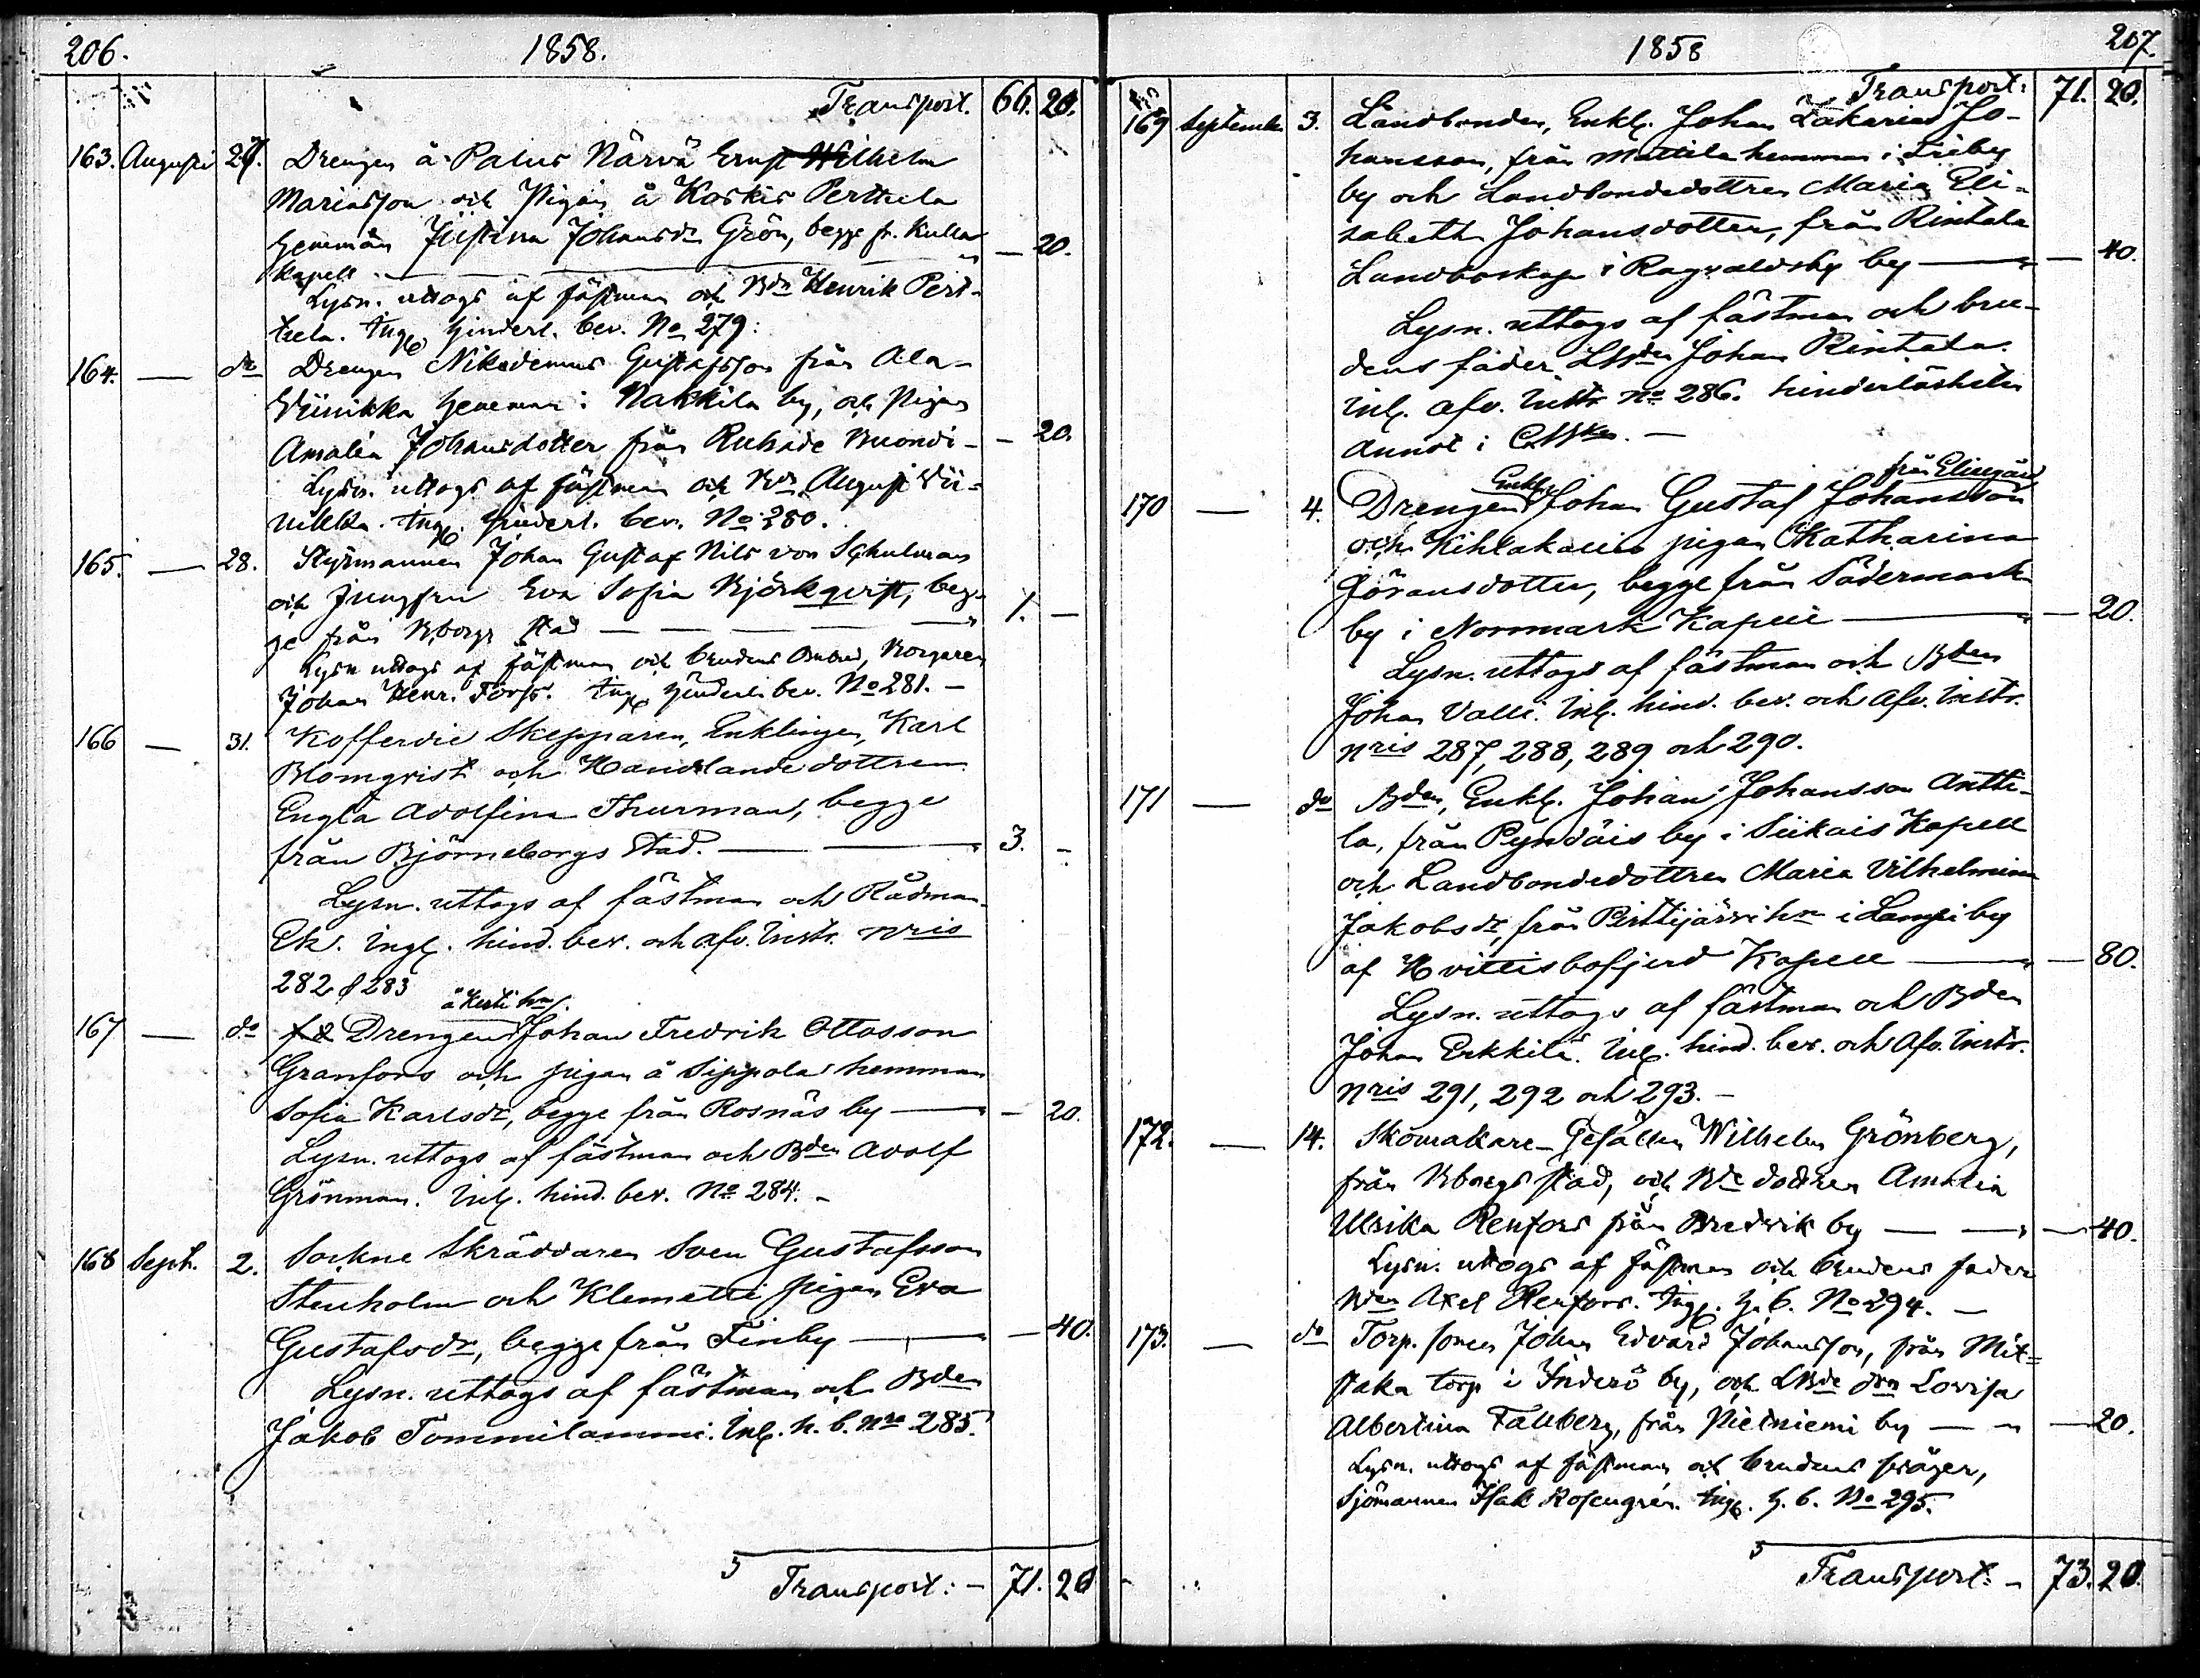 206.
1858.
Transport. 66. 20.
163. Augusti 27. Drengen å Palus Närvä Ernst Wilhelm
Mariasson och Pigan å Kaskis Perttula
hemman Justina Johansdr Grön, begge fr. Kulla
kapell — 20.
Lysn. uttogs af fästman och Bdn Henrik Pert-
tula. Ingl. hinderl. bev. No 279.
164. — do Drengen Nikodemus Gustafsson från Ala-
Viinikka hemman i Nakkila by, och Pigan
Amalia Johansdotter från Ruhade — 20.
Lysn. uttogs af fästman och Bdn August Vii-
nikka. Ingl. hinderl. bev. No 280.
165. — 28. Styrmannen Johan Gustaf Nils von Schulman
och Jungfru Eva Sofia Björkqvist, beg-
ge från Bborgs stad — 1. —
Lysn uttogs af fästman och brudens Borgaren
Johan Henr. Forss. Ingl. hinderl. bev. No 281. —
166 — 31. Kofferdie Skepparen, Enklingen, Karl
Blomqvist och Handlande dottren
Engla Adolfina Thurman, begge
från Björneborgs Stad. — 3. —
Lysn. uttogs af fästman och Rådman
Ek. Ingl. hind. bev. och afv. Instr. nris
282 & 283
å Kerti hmn.
167 — do Drengen Johan Fredrik Ottosson
Granfors och pigan å Sippola hemman
Sofia Karlsdr, begge från Rosnäs by — 20.
Lysn. uttogs af fästman och Bden Adolf
Grönman. Inl. hind. bev. No 284. —
168 Sept. 2. Sockne Skräddaren Sven Gustafsson
Stenholm och Klemetti pigan Eva
Gustafsdr, begge från Finby — 40.
Lysn. uttogs af fästman och Bden
Jakob Tommilammi. Inl. h. b. Nro 285.
Transport: — 71. 20
1858
207.
Transport: 71. 20.
169 September 3. Landbonden, Enkl. Johan Zakarias Jo-
hansson, från Mattila hemman i Friby
by och Landbondedottren Maria Eli-
sabeth Johansdotter, från Rintala
Landboskap i Ragvaldsby by — 40.
Lysn. uttogs af fästman och bru-
dens fader LBden Johan Rintala.
Inl. afv. Instr. No 286. hinderlösheten
annot i
170 — 4. Drengen Enkl. Johan Gustaf Johansson från Elingård
och KihlakaUs pigan Katharina
Göransdotter, begge från Södermark
by i Norrmark Kapell — 20.
Lysn. uttogs af fästman och Bden
Johan Valli. Inl. hind. bev. och afv. Instr.
nris 287, 288, 289 och 290.
171 — do Bden, Enkl. Johan Johansson Antti-
la, från Pyndäis by i Siikais Kapell
och Landbondedottren Maria Vilhelmina
Jakobsdr, från Pirttijärvi hn i Lampi by
af Hvittisbofjerd Kapell — 80.
Lysn. uttogs af fästman och Bden
Johan Erkkilä. Inl. hind. bev. och Afv. Instr.
nris 291, 292 och 293. —
172. — 14. Skomakare-Gesällen Wilhelm Grönberg,
från Bborgs stad, och Bde dottren Amalia
Ulrika Renfors från Bredvik by — 40.
Lysn. uttogs af fästman och brudens fader
Bden Axel Renfors. Ingl. h. b. No 294. —
173. — do Torp. sonen Johan Edvard Johansson, från Mit-
staka torp i Inderö by, och LBde dtrn Lovisa
Albertina Fallberg, från Pietniemi by — 20.
Lysn. uttogs af fästman och brudens svåger,
Sjömannen Isak Rosengrén. Ingl. h. b. No 295.
Transport: — 73. 20.